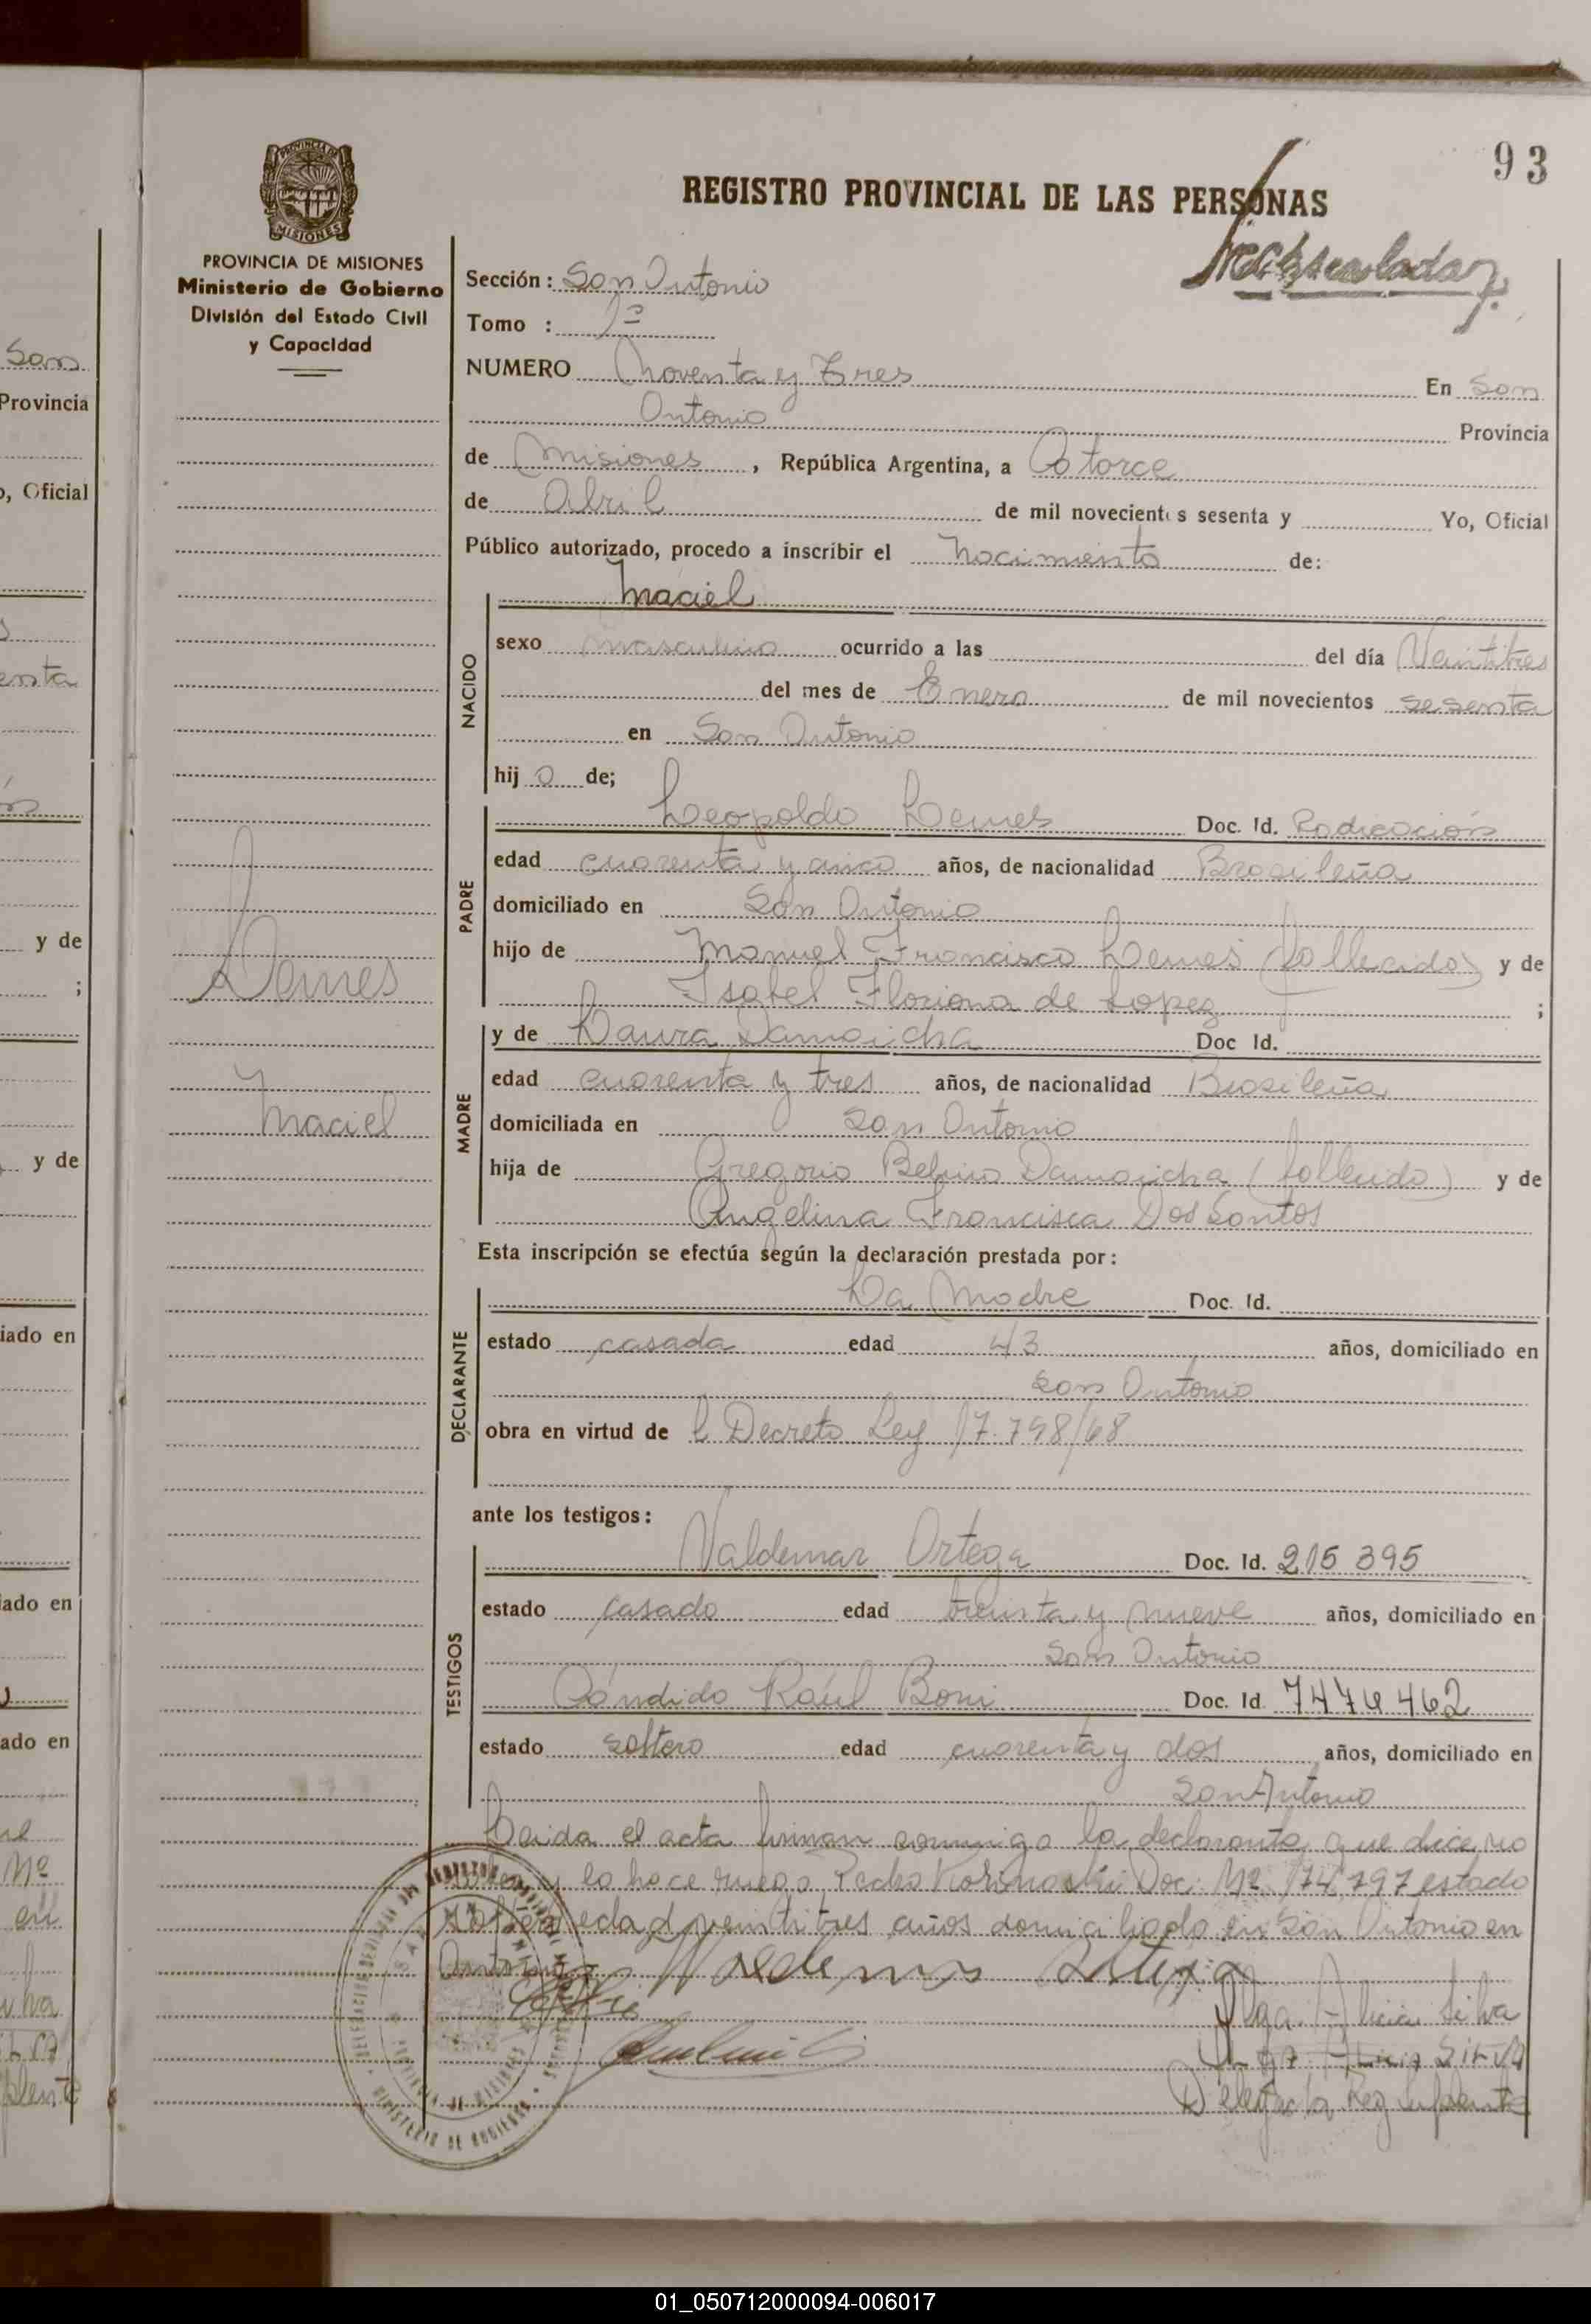 93
REGISTRO PROVINCIAL DE LAS PERSONAS
PROVINCIA DE MISIONES
Ministerio de Gobierno
División del Estado Civil
y Capacidad
Sección: San Antonio
Tomo : 1º
NUMERO Noventa y Tres En San
Antonio Provincia
de Misiones, República Argentina, a Catorce
de Abril de mil novecientos sesenta y Yo, Oficial
Público autorizado, procedo a inscribir el Nacimiento de:
Maciel
NACIDO
sexo masculino ocurrido a las del día Veintitres
del mes de Enero de mil novecientos sesenta
en San Antonio
hij o de;
PADRE
Leopoldo Lemes Doc. Id. Radicación
edad cuarenta y cinco años, de nacionalidad Brasileña
domiciliado en San Antonio
hijo de Manuel Francisco Lemes (fallecido) y de
Isabel Floriana de Lopez ;
Lemes
Maciel
MADRE
y de Laura Damaicha Doc Id.
edad cuarenta y tres años, de nacionalidad Brasileña
domiciliada en San Antonio
hija de Gregorio Damaicha (fallecido) y de
Angelina Francisca Dos Santos
Esta inscripción se efectúa según la declaración prestada por:
DECLARANTE
La Madre Doc. Id.
estado casada edad 43 años, domiciliado en
San Antonio
obra en virtud de l Decreto Ley 17.798/68
ante los testigos:
TESTIGOS
Valdemar Ortega Doc. Id. 215 395
estado casado edad treinta y nueve años, domiciliado en
San Antonio
Cándido Raúl Boni Doc. Id. 7474462
estado soltero edad cuarenta y dos años, domiciliado en
San Antonio
Leida el acta firman conmigo la declarante que dice no
lo hace ruego Pedro Doc. Nº 174797 estado
soltero edad veintitres años domiciliado en San Antonio en
Olga Alicia Silva
Olga Alicia SILVA
Delegada Reg Suplente
San
Provincia
, Oficial
y de
;
y de
iado en
iado en
ado en
Nº
en
01_050712000094-006017